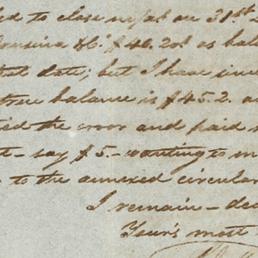 to close up at on 31st
Cousins &c. £40.20s as bala
that date; but I have
true balance is £45.2. a
the error and paid
say £5. - wanting to m
to the annexed circular
I remain - dea
Your's most